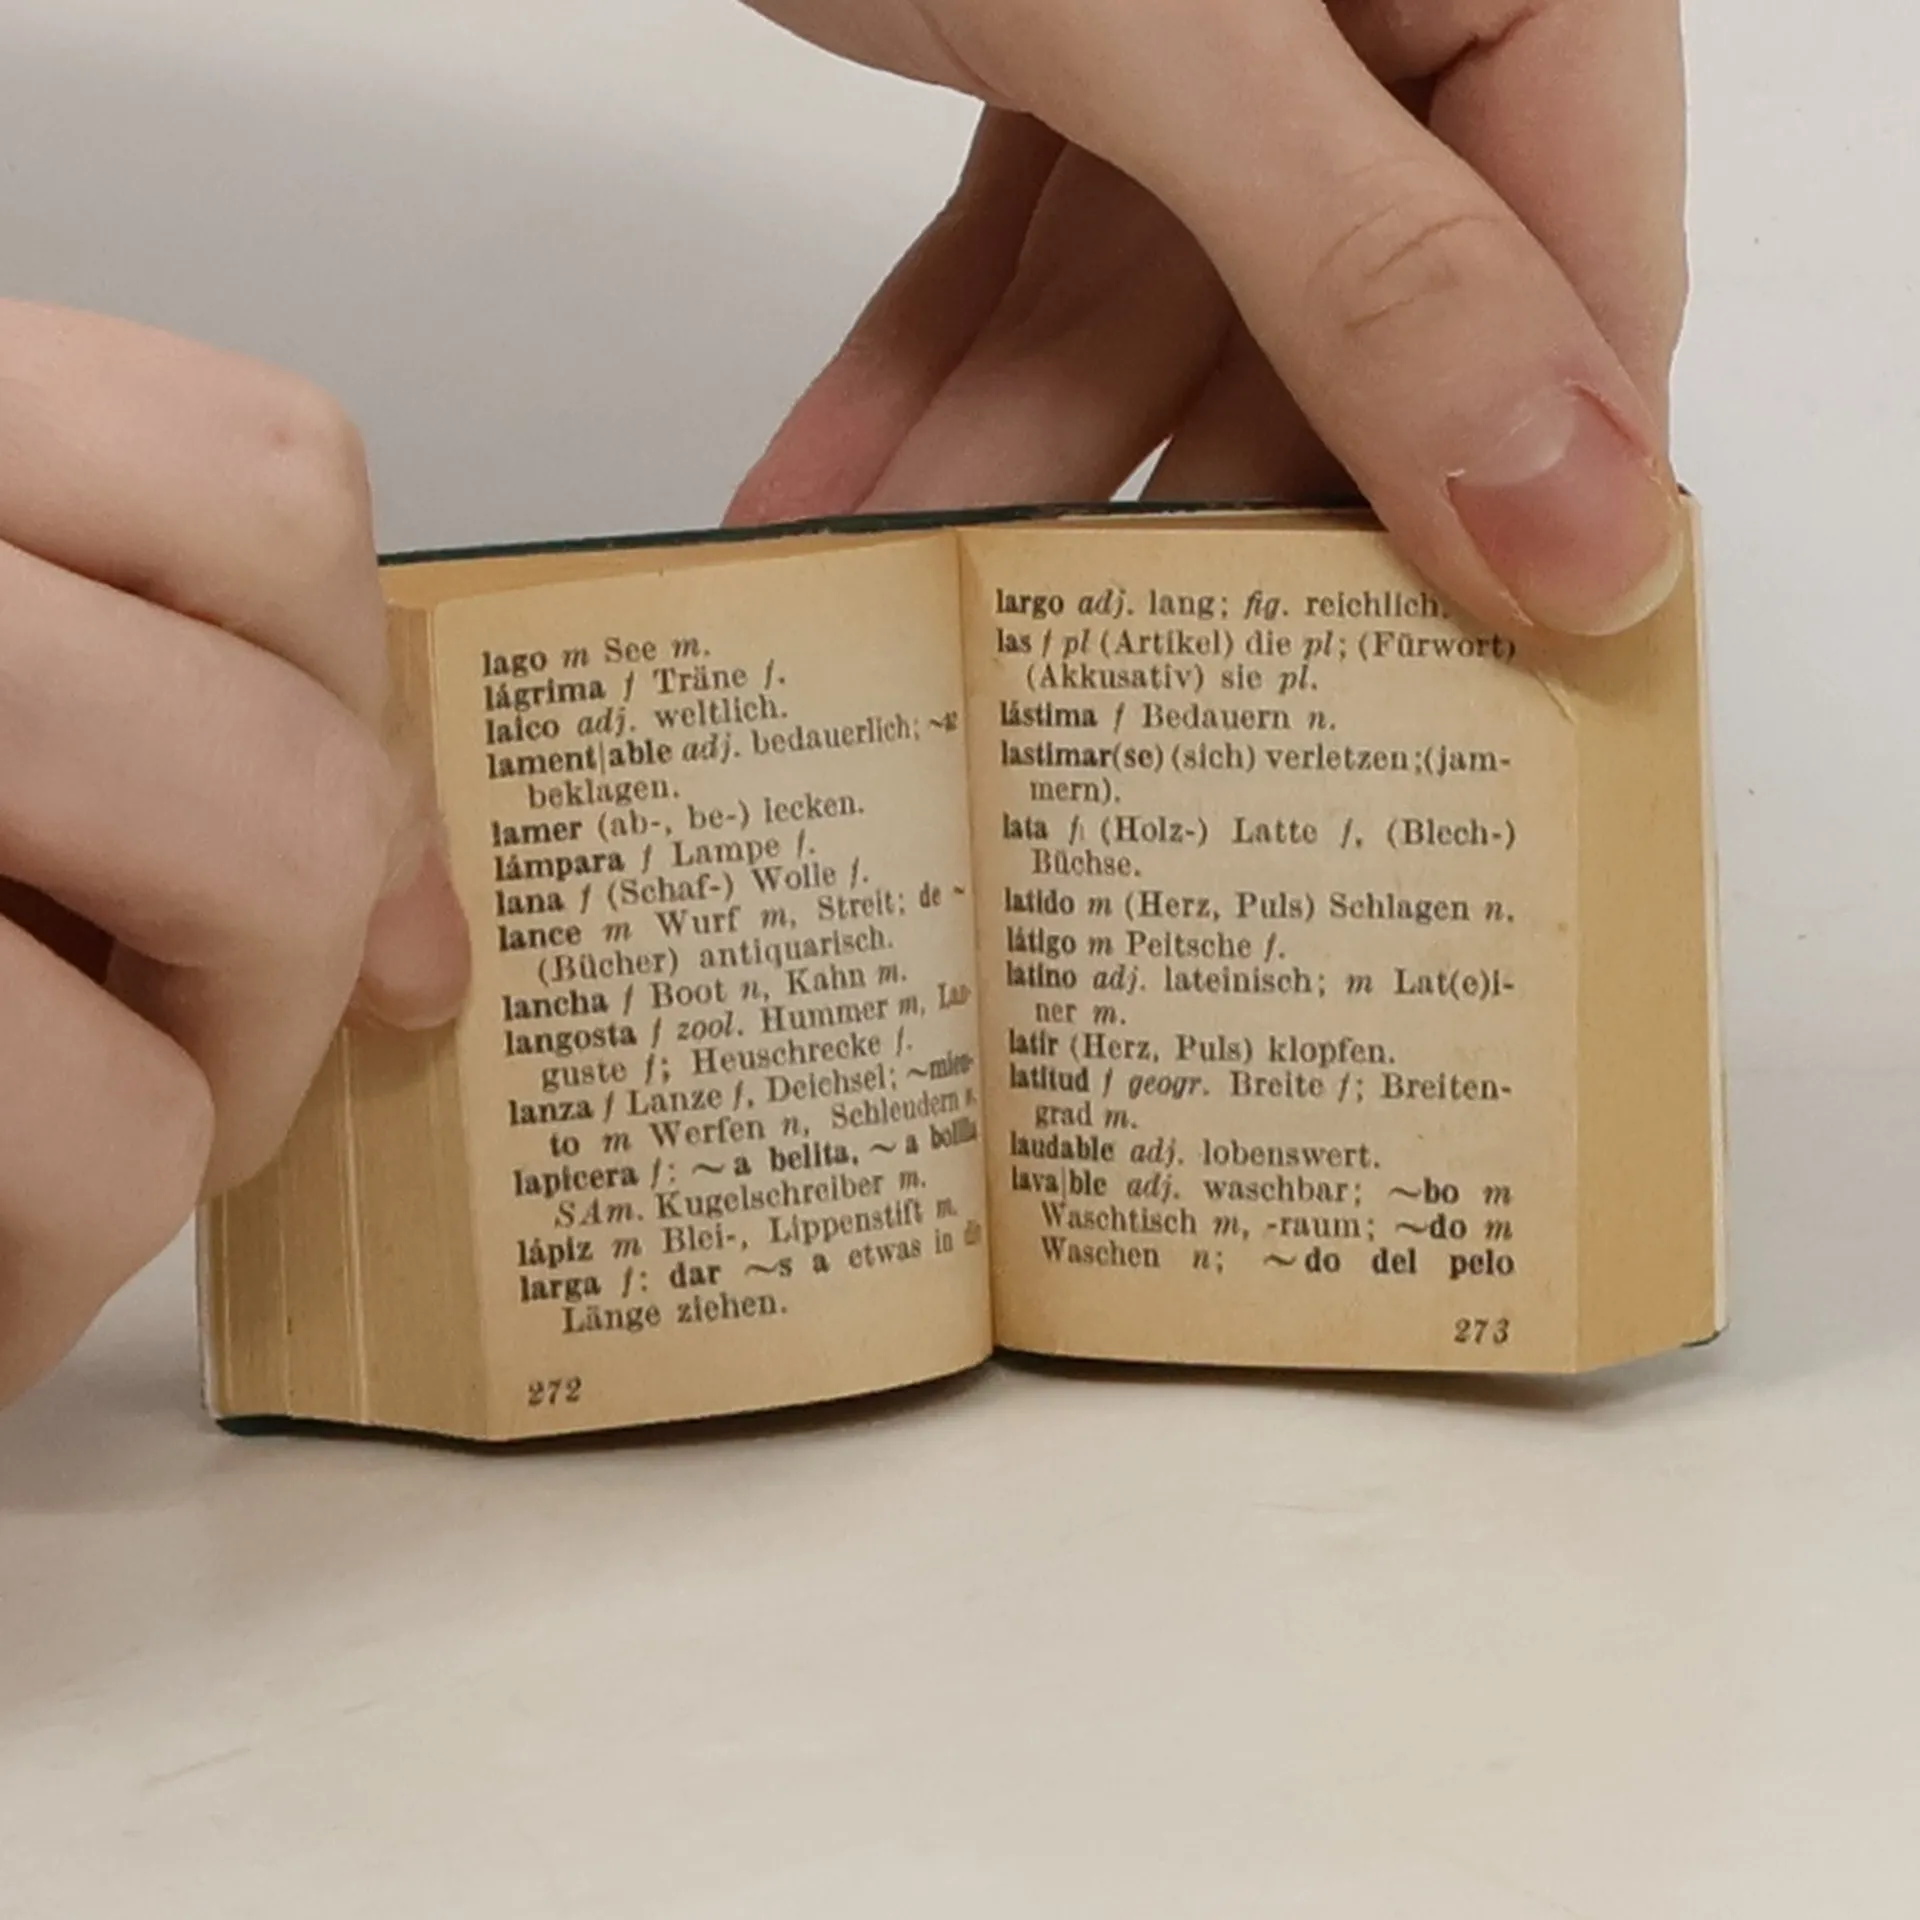 lago m See m.
lágrima f Träne f.
laico adj. weltlich.
lament|able adj. bedauerlich;
beklagen.
lamer (ab-, be-) lecken.
lámpara f Lampe f.
lana f (Schaf-) Wolle f.
lance m Wurf m, Streit; de ~
(Bücher) antiquarisch.
lancha f Boot n, Kahn m.
langosta f zool. Hummer m, Lan-
guste f; Heuschrecke f.
lanza f Lanze f, Deichsel; ~mien-
to m Werfen n, Schleudern n.
lapicera f: ~ a belita, ~ a bolilla
SAm. Kugelschreiber m.
lápiz m Blei-, Lippenstift m.
larga f: dar ~s a etwas in die
Länge ziehen.
272
largo adj. lang; fig. reichlich.
las f pl (Artikel) die pl; (Fürwort)
(Akkusativ) sie pl.
lástima f Bedauern n.
lastimar(se) (sich) verletzen;(jam-
mern).
lata f, (Holz-) Latte f, (Blech-)
Büchse.
latido m (Herz, Puls) Schlagen n.
látigo m Peitsche f.
latino adj. lateinisch; m Lat(e)i-
ner m.
latir (Herz, Puls) klopfen.
latitud f geogr. Breite f; Breiten-
grad m.
laudable adj. lobenswert.
lava|ble adj. waschbar; ~bo m
Waschtisch m, -raum; ~do m
Waschen n; ~do del pelo
273